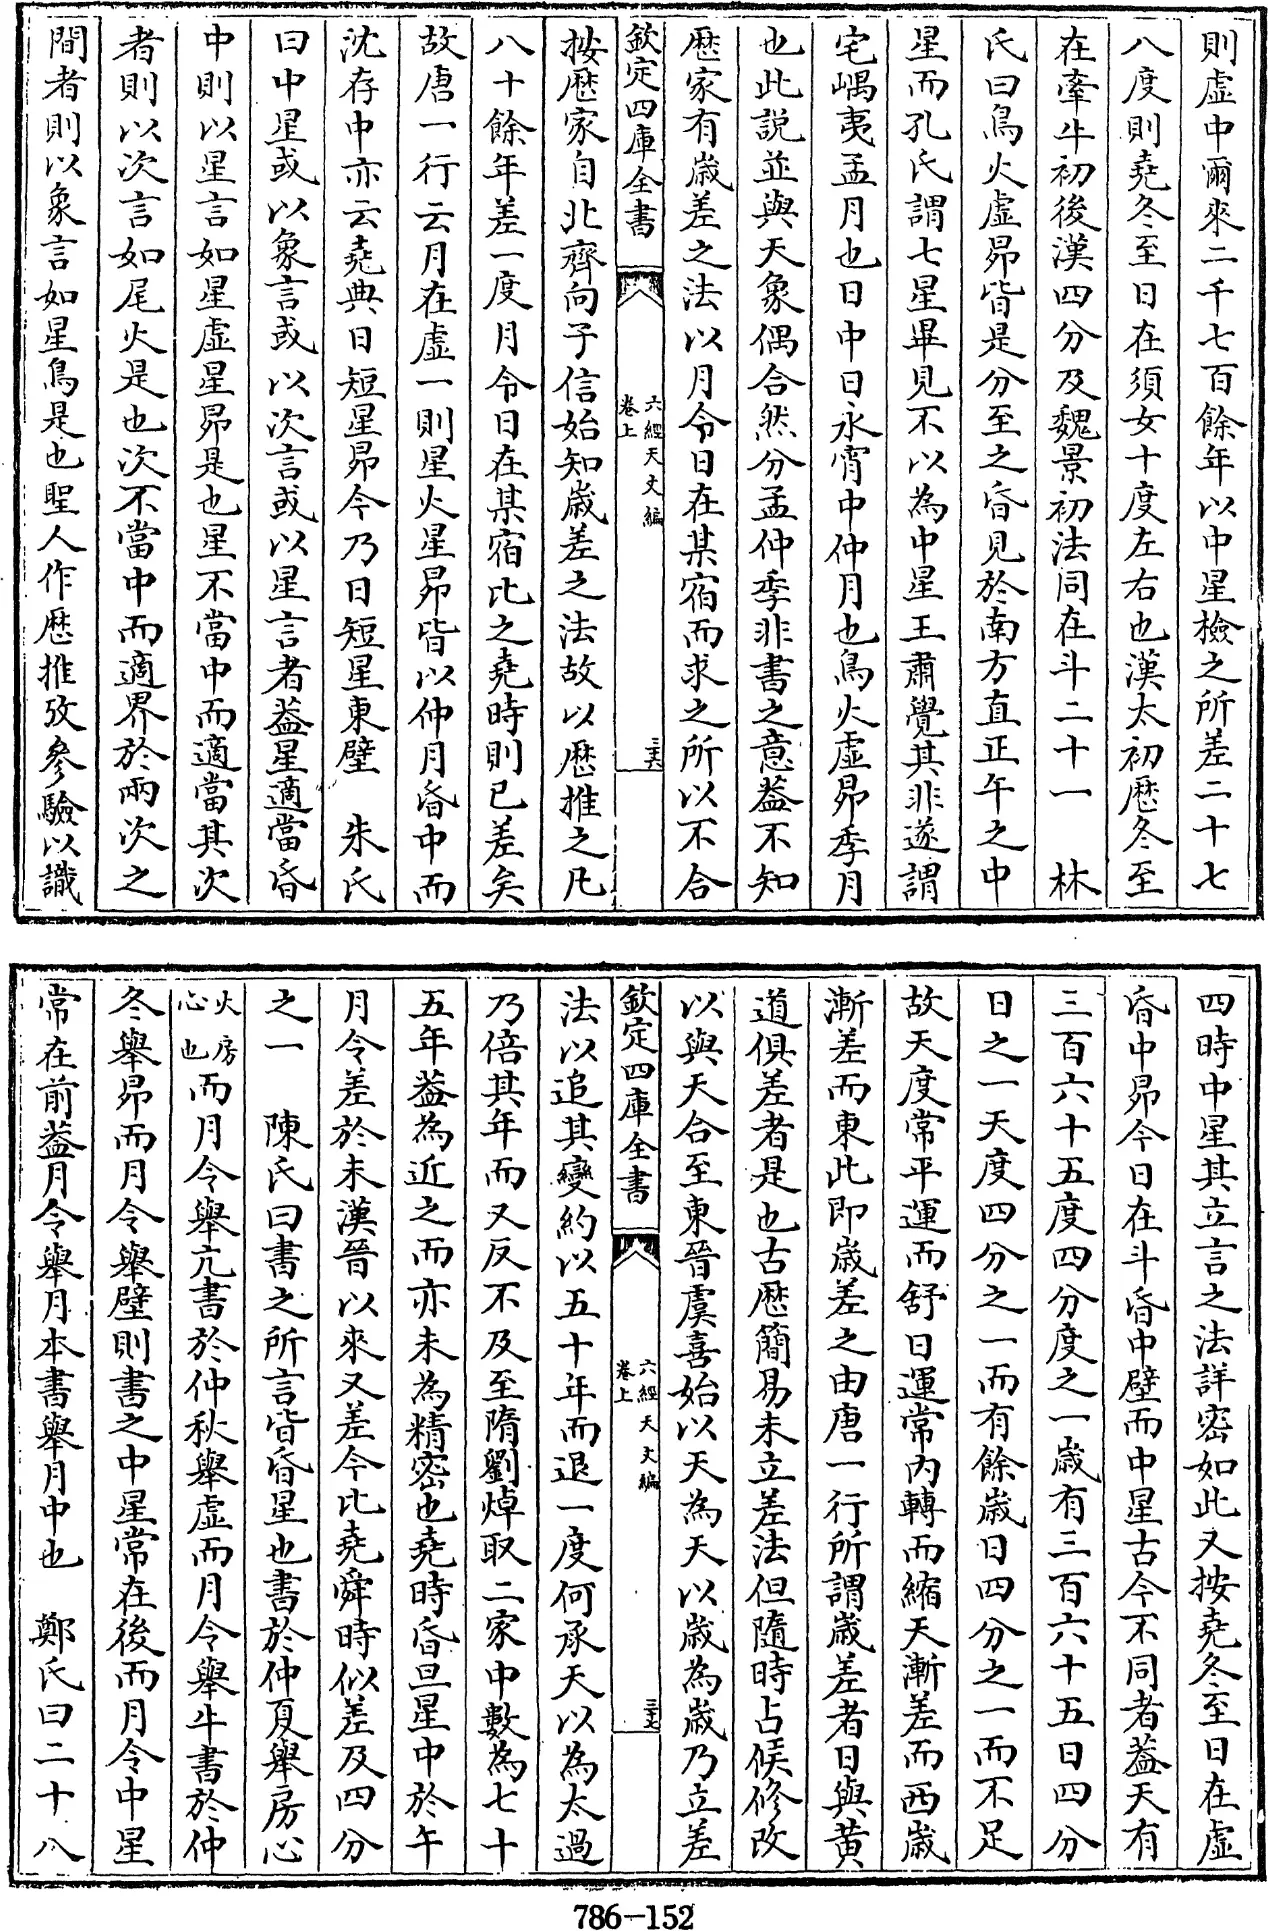 則虛中爾來二千七百餘年以中星檢之所差二十七
八度則堯冬至日在須女十度左右也漢太初厯冬至
在牽牛初後漢四分及魏景初法同在斗二十一　林
氏曰鳥火虛昴皆是分至之昏見於南方直正午之中
星而孔氏謂七星畢見不以為中星王肅覺其非遂謂
宅嵎夷孟月也日中日永宵中仲月也鳥火虛昴季月
也此説並與天象偶合然分孟仲季非書之意葢不知
厯家有歲差之法以月令日在某宿而求之所以不合
欽定四庫全書　六經天文編　卷上　三十六
按厯家自北齊向子信始知歲差之法故以厯推之凡
八十餘年差一度月令日在某宿比之堯時則已差矣
故唐一行云月在虛一則星火星昴皆以仲月昏中而
沈存中亦云堯典日短星昴今乃日短星東壁　朱氏
曰中星或以象言或以次言或以星言者葢星適當昏
中則以星言如星虛星昴是也星不當中而適當其次
者則以次言如尾火是也次不當中而適界於兩次之
間者則以象言如星鳥是也聖人作厯推攷參驗以識
四時中星其立言之法詳密如此又按堯冬至日在虛
昏中昴今日在斗昏中壁而中星古今不同者葢天有
三百六十五度四分度之一歲有三百六十五日四分
日之一天度四分之一而有餘歲日四分之一而不足
故天度常平運而舒日運常內轉而縮天漸差而西歲
漸差而東此即歲差之由唐一行所謂歲差者日與黃
道俱差者是也古厯簡易未立差法但隨時占候修改
以與天合至東晉虞喜始以天為天以歲為歲乃立差
欽定四庫全書　六經天文編　卷上　三十七
法以追其變約以五十年而退一度何承天以為太過
乃倍其年而又反不及至隋劉焯取二家中數為七十
五年葢為近之而亦未為精密也堯時昏旦星中於午
月令差於未漢晉以來又差今比堯舜時似差及四分
之一　陳氏曰書之所言皆昏星也書於仲夏舉房心
火房心也而月令舉亢書於仲秋舉虛而月令舉牛書於仲
冬舉昴而月令舉壁則書之中星常在後而月令中星
常在前葢月令舉月本書舉月中也　鄭氏曰二十八
786-152